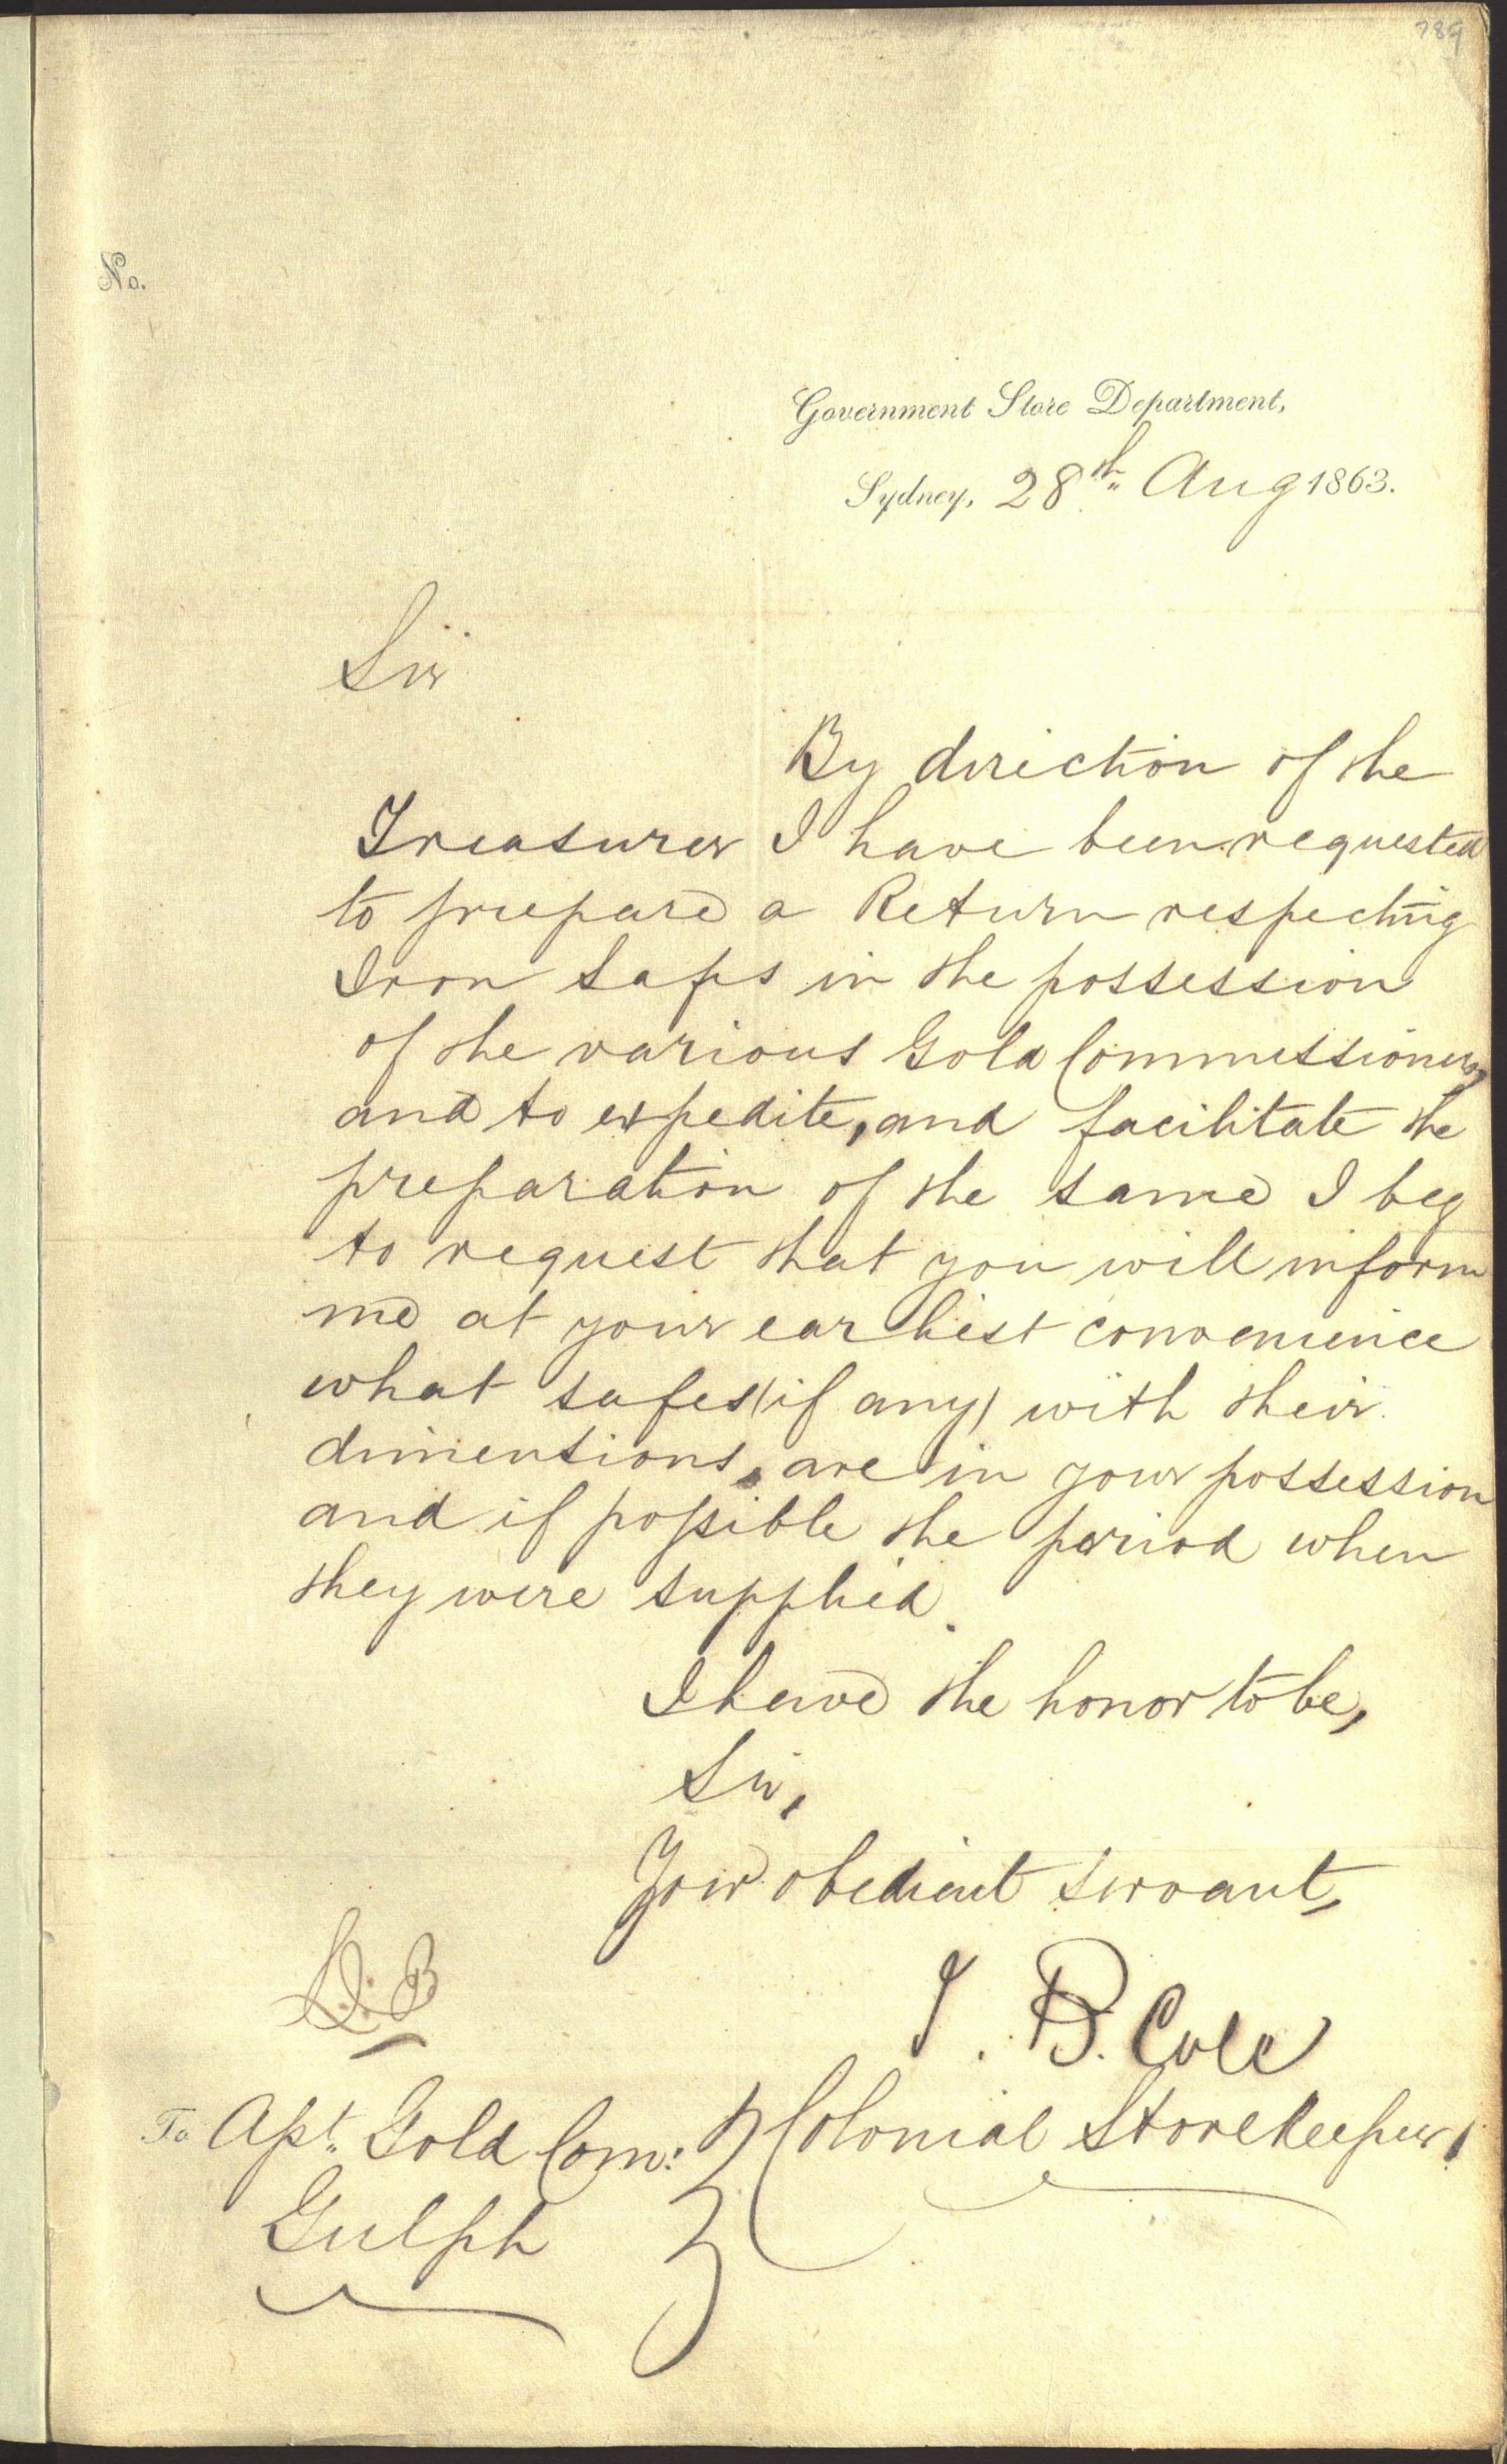 789
No.
Government Store Department,
Sydney, 28th Aug 1863.
Sir
By direction of the
Treasurer I have been requested
to prepare a Return respecting
Iron Safes in the possession
of the various Gold Commissioners,
and to expedite, and facilitate the
preparation of the same I beg
to request that you will inform
me at your earliest convenience
what safes (if any) with their
dimensions, are in your possession
and if possible the period when
they were supplied.
I have the honor to be,
Sir,
Your obedient servant,
J. B. Cole
Colonial Storekeeper.
To Asst. Gold Com:
Gulph